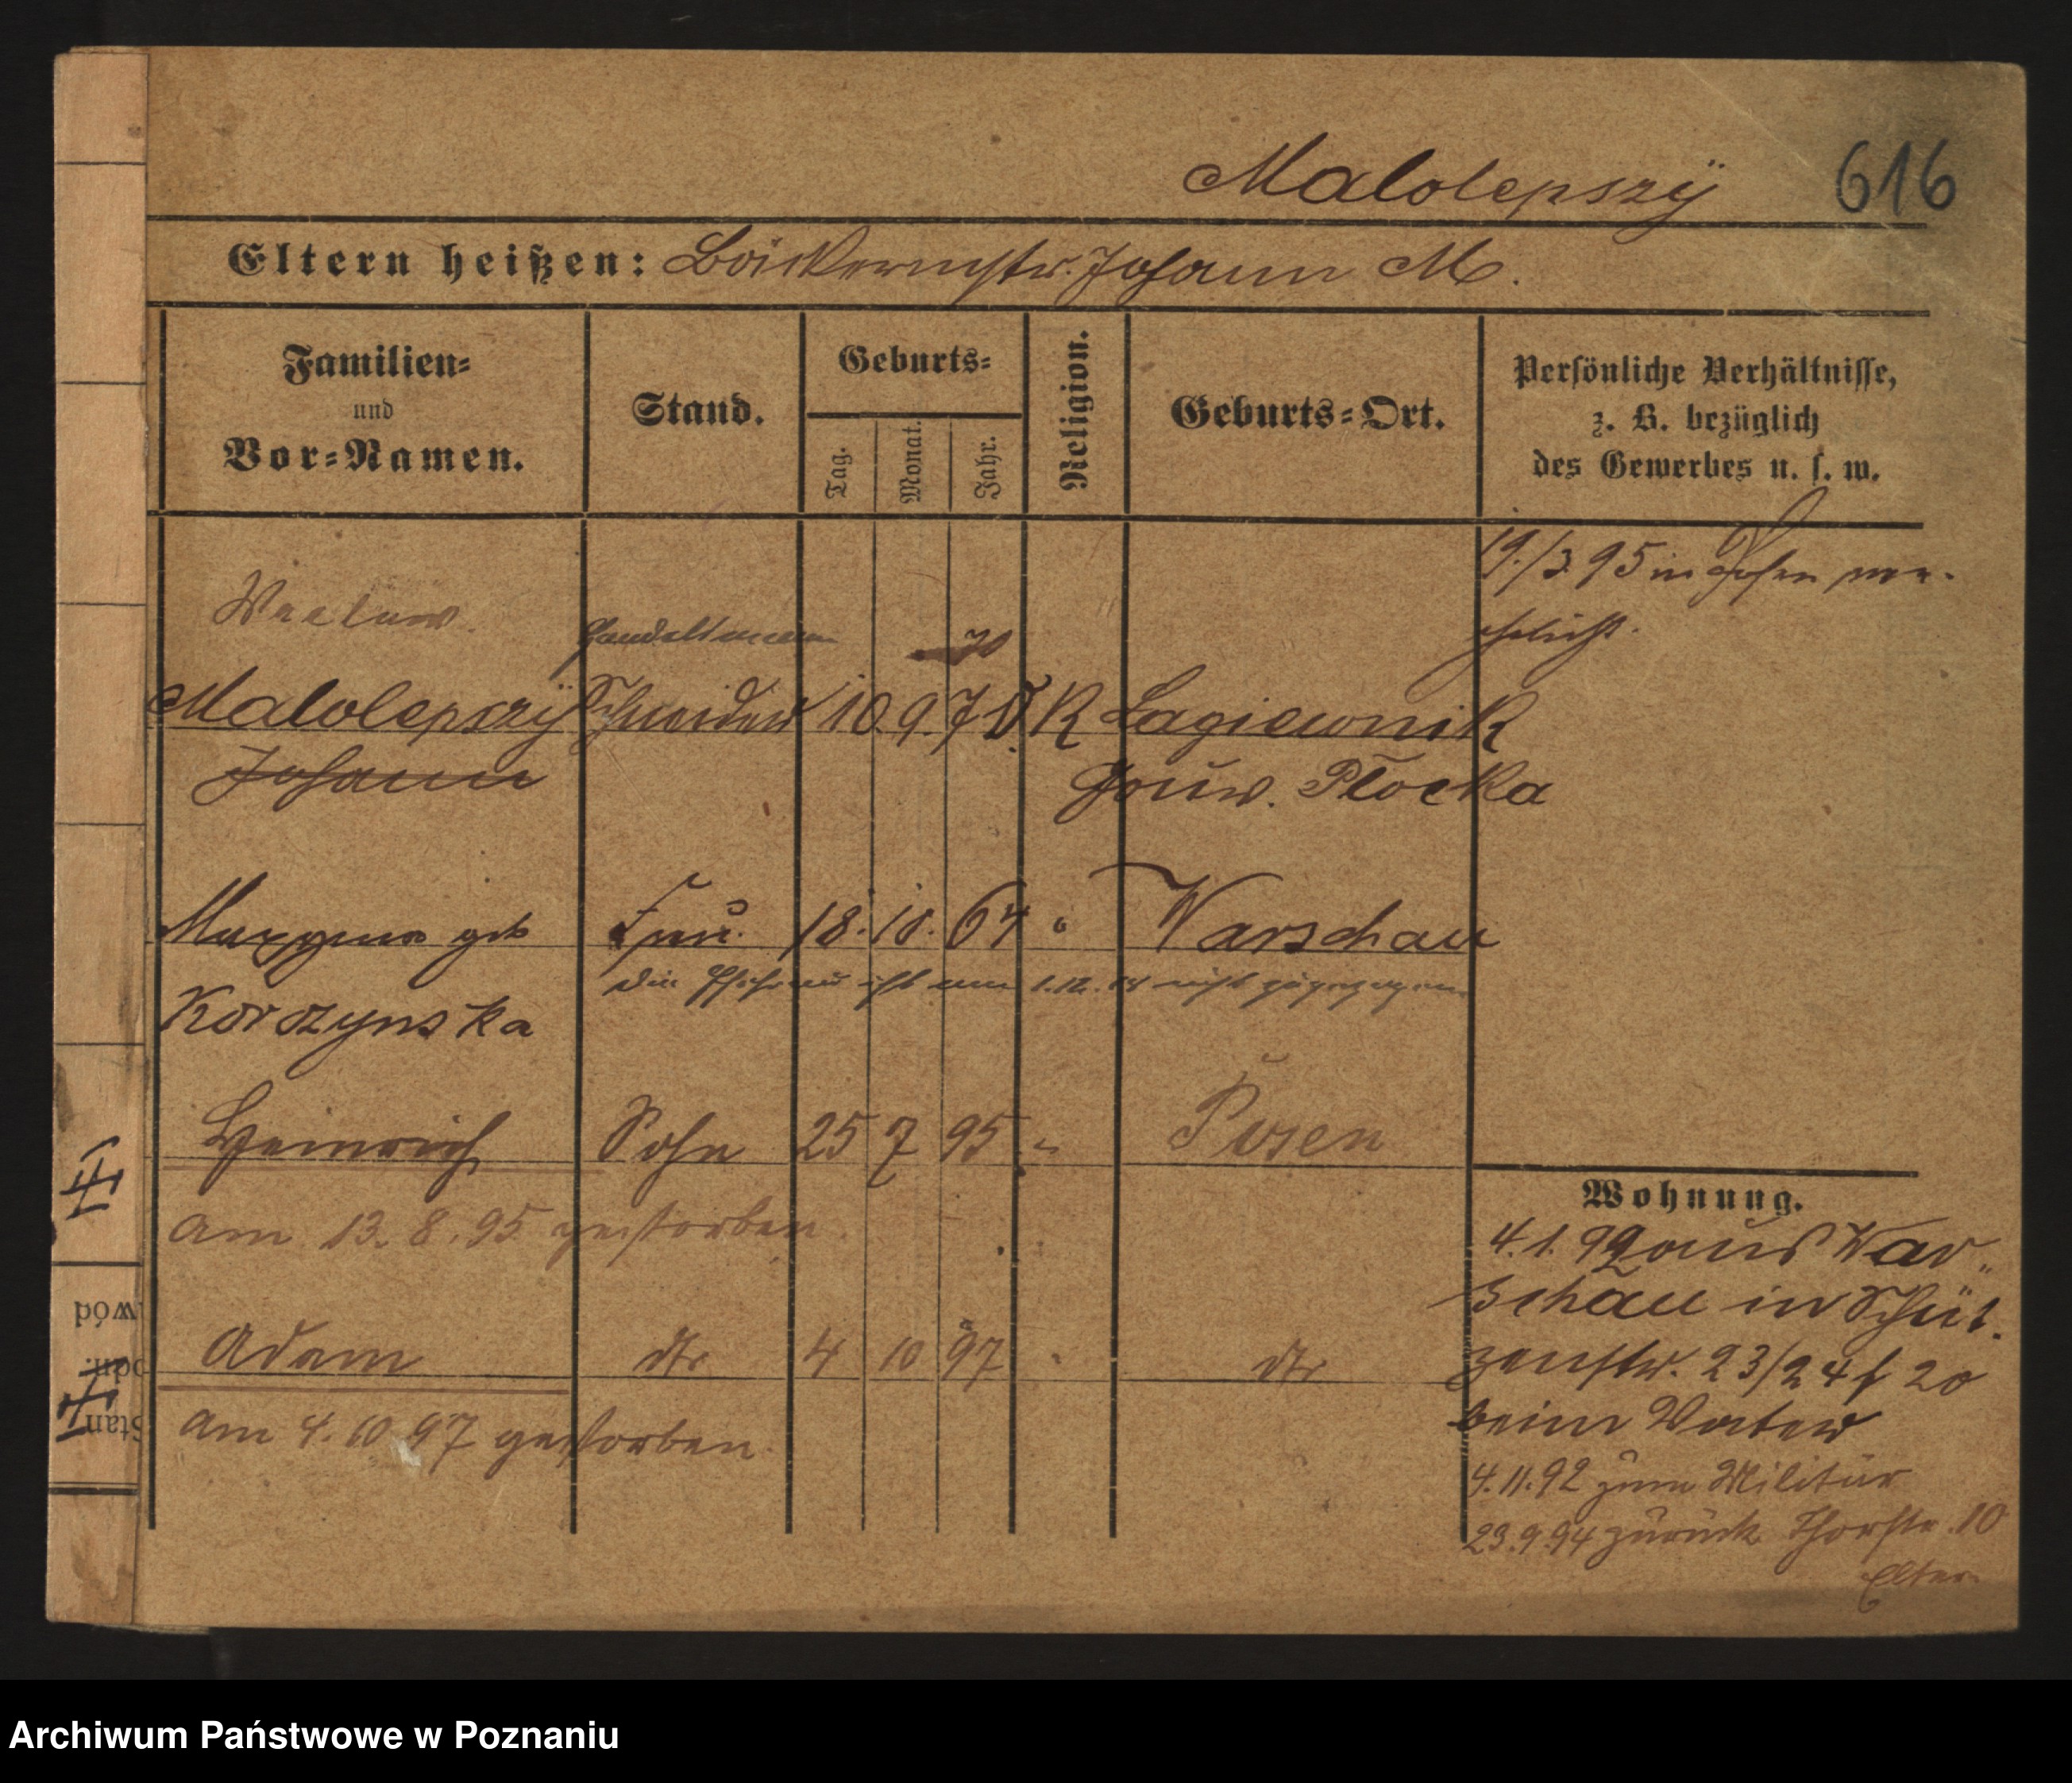 Malolepszÿ 616
Eltern heißen: Bäckermstr. Johann M.
Familien-
und
Vor-Namen.
Stand.
Geburts-
Tag.
Monat.
Jahr.
Religion.
Geburts-Ort.
Persönliche Verhältnisse,
z. B. bezüglich
des Gewerbes u. s. w.
19./3. 95 in Posen ver-
ehelicht.
Waclaw. Handelsmann 70
Malolepszÿ Schneider 10. 9. 70. K Lagiewnik
Johann Gouv. Plocka
geb Frau. 18. 10. 64 " Warschau
Die Ehefrau ist am nicht zugezogen
Korczynska
Heinrich Sohn 25 7 95 " Posen
am 13. 8. 95 gestorben.
Adam dto 4 10 97 " dto
am 4. 10 97 gestorben.
Wohnung.
4. 1. 92 aus War-
schau in Schüt-
zenstr. 23/24 f 20
beim Vater
4. 11. 92 zum Militär
23. 9. 94 zurück Thorstr. 10
Eltern
wód
Stan
Archiwum Państwowe w Poznaniu